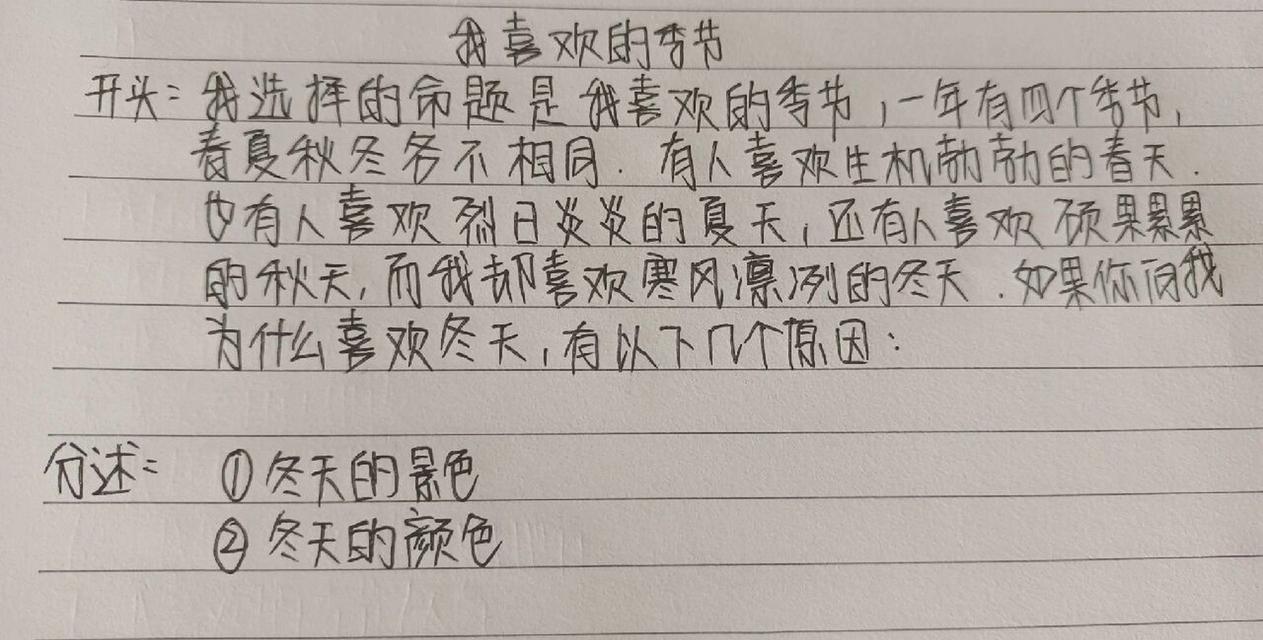 我喜欢的季节
开头：我选择的命题是我喜欢的季节，一年有四个季节，
春夏秋冬各不相同．有人喜欢生机勃勃的春天．
也有人喜欢烈日炎炎的夏天，还有人喜欢硕果累累
的秋天，而我却喜欢寒风凛冽的冬天．如果你问我
为什么喜欢冬天，有以下几个原因：
分述：①冬天的景色
②冬天的颜色